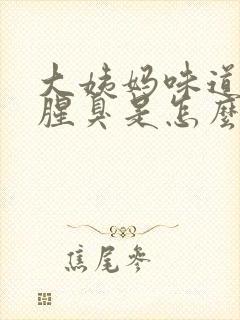 大姨妈味道
腥臭是怎麼
焦尾參